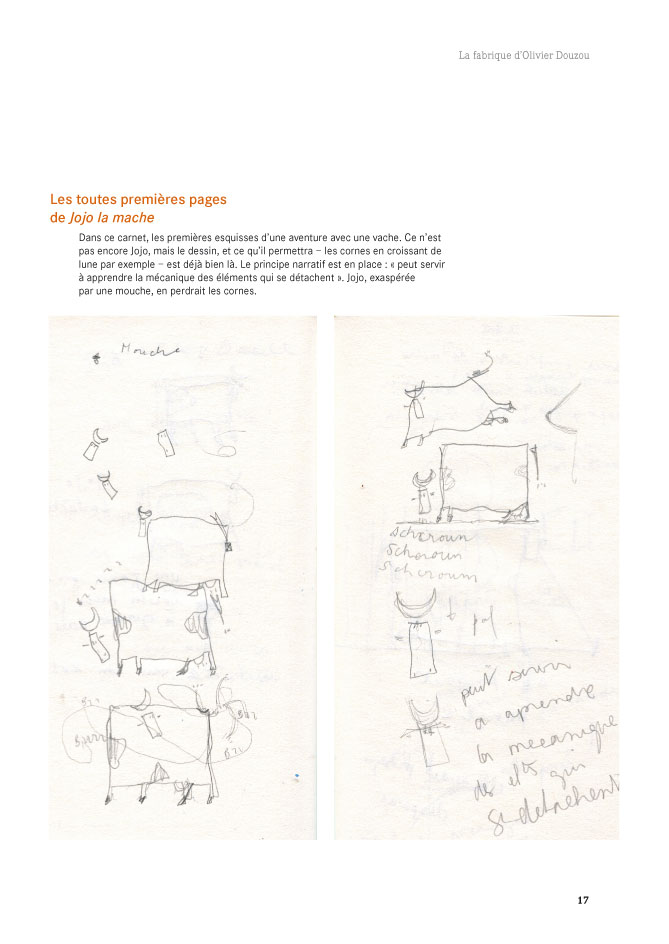 La fabrique d'Olivier Douzou
Les toutes premières pages
de Jojo la mache
Dans ce carnet, les premières esquisses d'une aventure avec une vache. Ce n'est
pas encore Jojo, mais le dessin, et ce qu'il permettra – les cornes en croissant de
lune par exemple – est déjà bien là. Le principe narratif est en place : « peut servir
à apprendre la mécanique des éléments qui se détachent ». Jojo, exaspérée
par une mouche, en perdrait les cornes.
Mouche
Bzz
Bzz
Bzz
scheroun
scheroun
scheroum
peut servir
a aprendre
la mecanique
des elts qui
se detachent
17